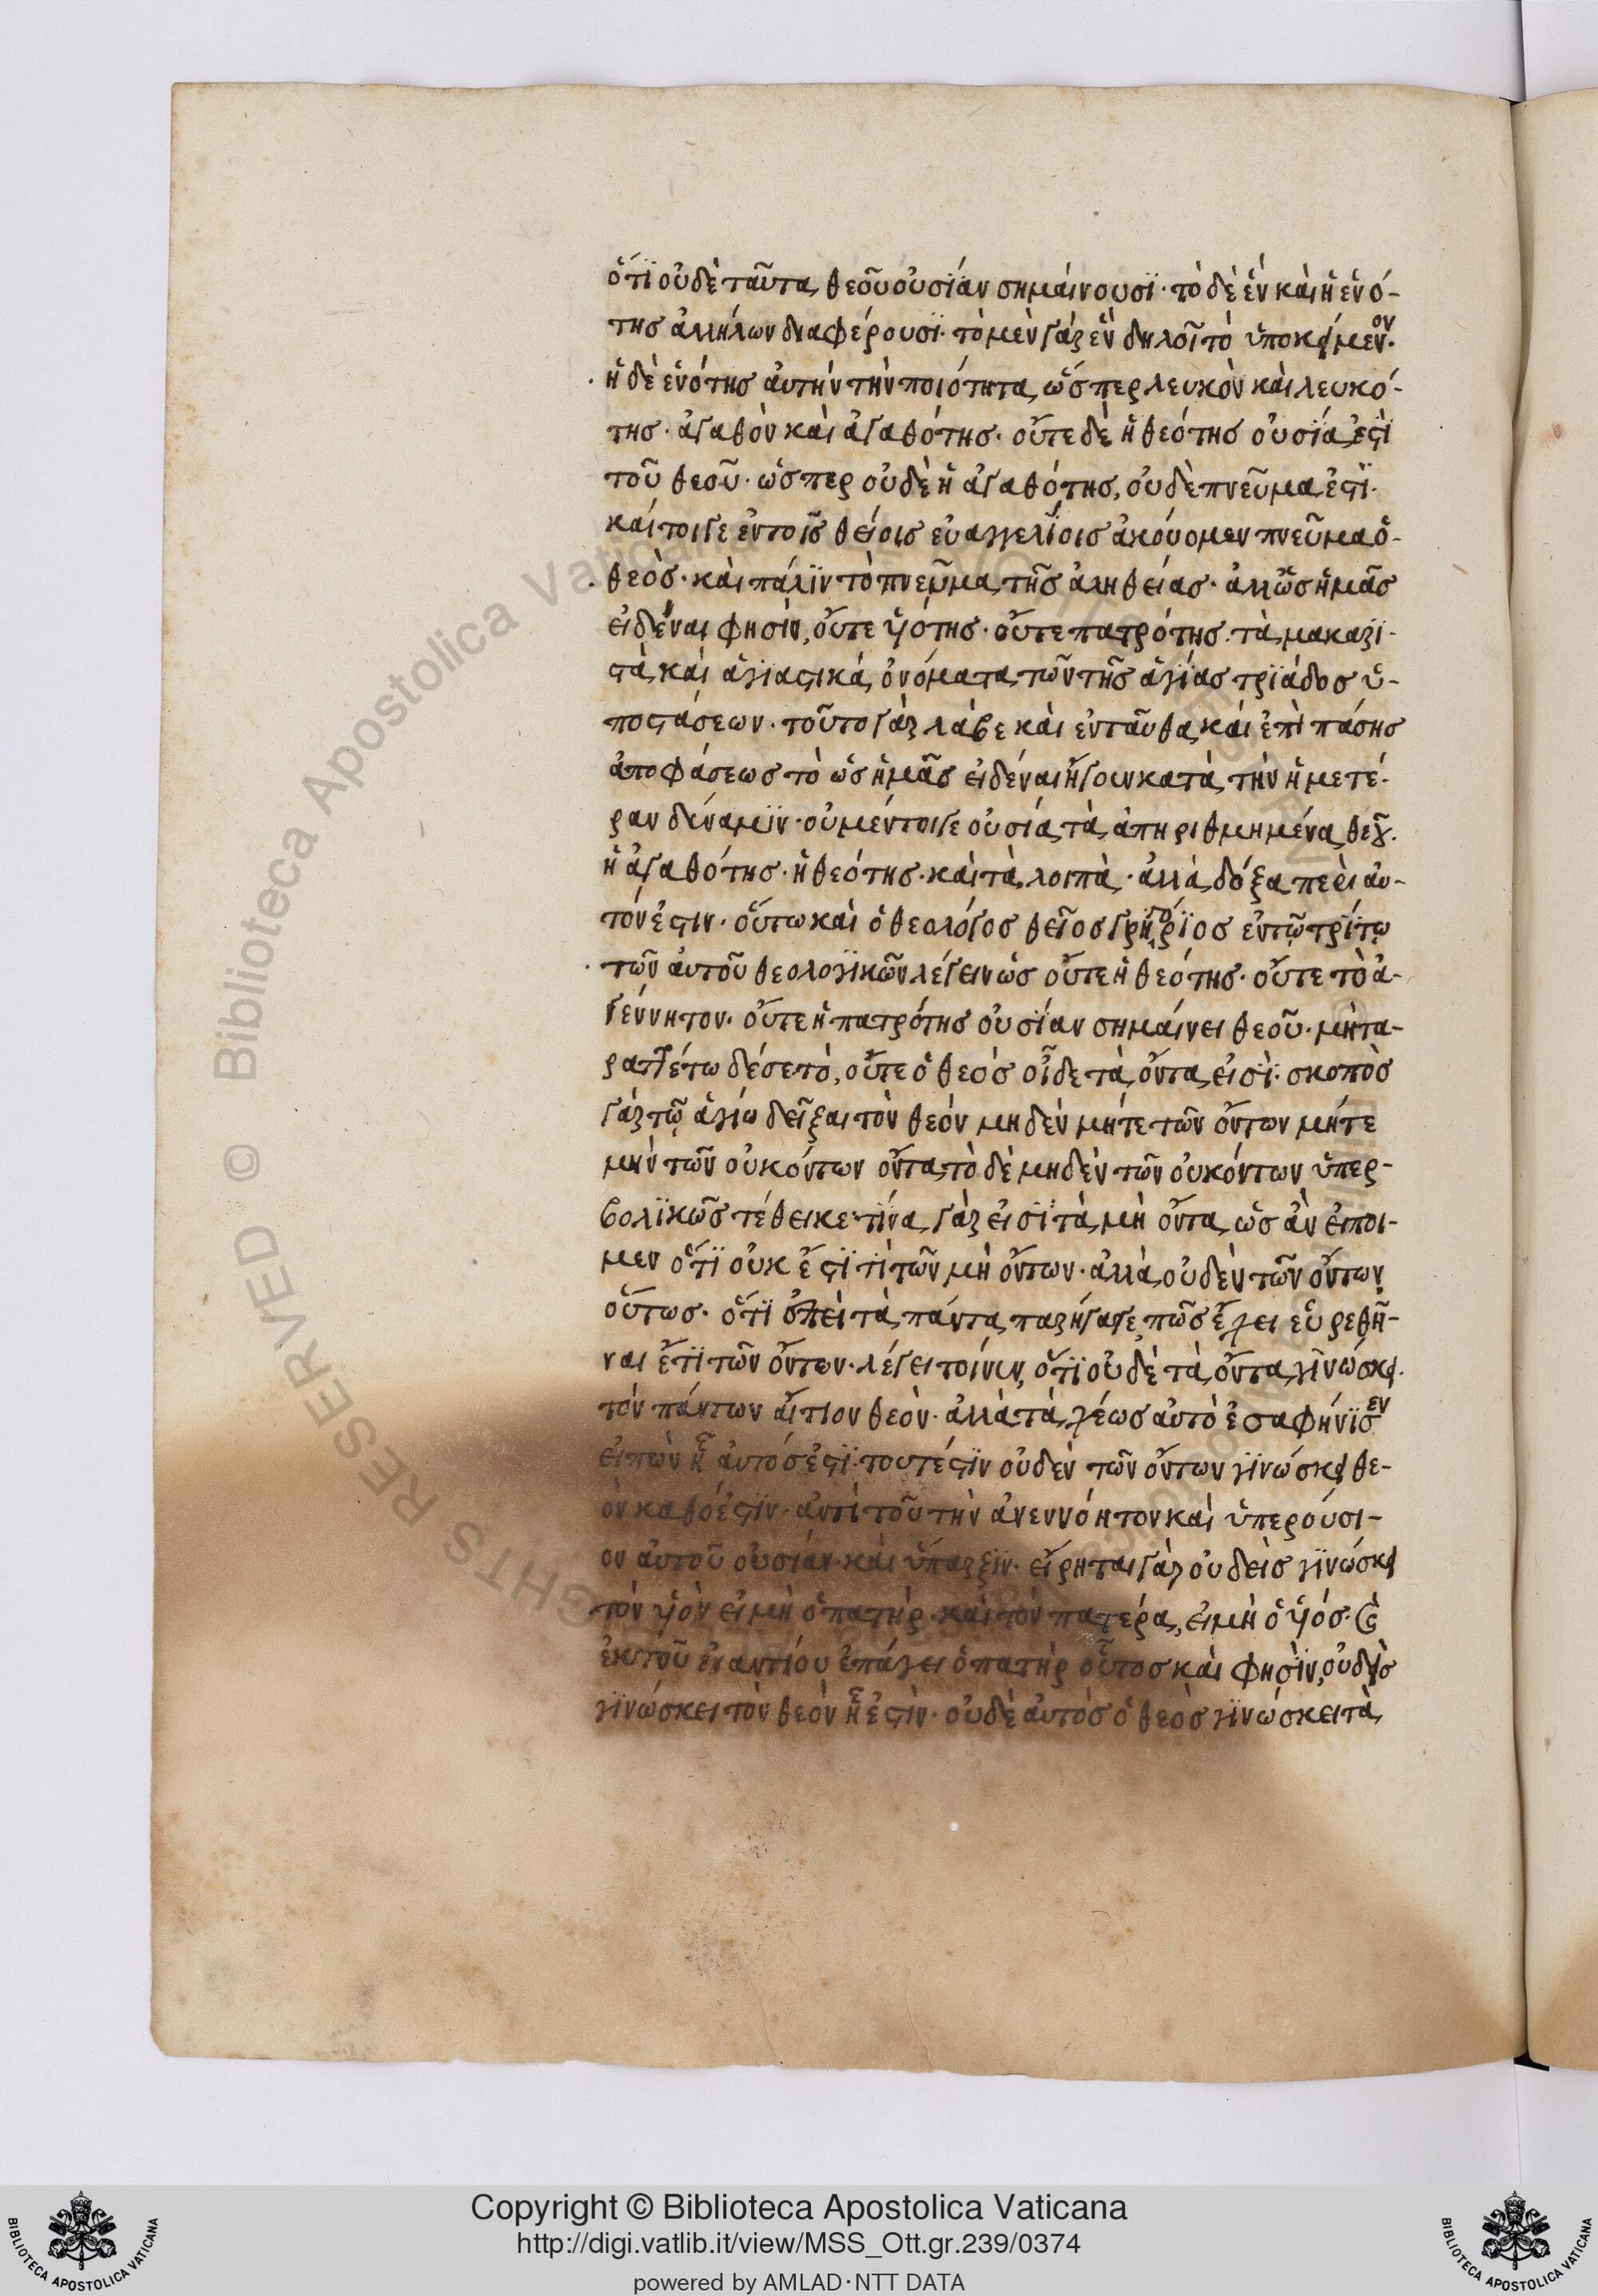 ὅτϊ οὐδὲ ταῦτα θεοῦ οὐσίαν σημαίνουσϊ· τὸ δὲ ἓν καὶ ἡ ἑνό-
της ἀλλήλων διαφέρουσϊ· τὸ μὲν γὰρ ἓν δηλοῖ τὸ ὑποκείμενον·
ἡ δὲ ἑνότης αὐτὴν τὴν ποιότητα, ὥσπερ λευκὸν καὶ λευκό-
της· ἀγαθὸν καὶ ἀγαθότης· οὔτε δὲ ἡ θεότης οὐσία ἐστὶ
τοῦ θεοῦ· ὥσπερ οὐδὲ ἡ ἀγαθότης, οὐδὲ πνεῦμα ἐστϊ·
καίτοιγε ἐν τοῖς θείοις εὐαγγελίοις ἀκούομεν πνεῦμα ὁ-
θεὸς· καὶ πάλϊν τὸ πνεῦμα τῆς ἀληθείας· ἀλλ' ὡς ἡμᾶς
εἰδέναι φησὶν, οὔτε ὑϊότης· οὔτε πατρότης· τὰ μακαρϊ-
στὰ καὶ ἁγιαστικὰ ὀνόματα τῶν τῆς ἁγίας τρϊάδος ὑ-
ποστάσεων· τοῦτο γὰρ λάβε καὶ ἐνταῦθα καὶ ἐπὶ πάσης
ἀποφάσεως τὸ ὡς ἡμᾶς εἰδέναι ἤγουν κατὰ τὴν ἡμετέ-
ραν δύναμϊν· οὐ μέντοιγε οὐσία τὰ ἀπηριθμημένα θεοῦ·
ἡ ἀγαθότης· ἡ θεότης· καὶ τὰ λοιπὰ· ἀλλὰ δόξα περὶ αὐ-
τόν ἐστιν· οὕτω καὶ ὁ θεολόγος θεῖος γρηγόρϊος ἐν τῷ τρίτῳ
τῶν αὐτοῦ θεολογϊκῶν λέγειν ὡς οὔτε ἡ θεότης· οὔτε τὸ ἀ-
γέννητον· οὔτε ἡ πατρότης οὐσίαν σημαίνει θεοῦ· μὴ τα-
ραττέτω δέ σε τὸ, οὔτε ὁ θεὸς οἶδε τὰ ὄντα εἰσὶ· σκοπὸς
γὰρ τῷ ἁγίῳ δεῖξαι τὸν θεόν μηδὲν μήτε τῶν ὄντων μήτε
μὴν τῶν οὐκόντων ὄντα, τὸ δὲ μηδὲν τῶν οὐκόντων ὑπερ-
βολϊκῶς τέθεικε· τίνα γὰρ εἰσὶ τὰ μὴ ὄντα, ὡς ἂν εἴποι-
μεν ὅτϊ οὐκ ἔστϊ τὶ τῶν μὴ ὄντων· ἀλλὰ οὐδὲν τῶν ὄντων
οὕτως· ὅτϊ ἐπεὶ τὰ πάντα παρήγαγε, πῶς ἔχει εὑρεθῆ-
ναι ἔτϊ τῶν ὄντων· λέγει τοίνυν, ὅτϊ οὐδὲ τὰ ὄντα γϊνώσκει
τὸν πάντων αἴτιον θεὸν· ἀλλὰ ταχέως αὐτὸ ἐσαφήνϊσεν
εἰπὼν ᾗ αὐτός ἐστϊ· τουτέστϊν οὐδὲν τῶν ὄντων γϊνώσκει θε-
ὸν καθό ἐστϊν· ἀντὶ τοῦ τὴν ἀνεννόητον καὶ ὑπερούσι-
ον αὐτοῦ οὐσίαν· καὶ ὕπαρξϊν· εἴρηται γὰρ οὐδεὶς γϊνώσκει
τὸν ὑϊὸν εἰ μὴ ὁ πατήρ· καὶ τὸν πατέρα, εἰ μὴ ὁ ὑϊός· καὶ
ἐκ τοῦ ἐναντίου ἐπάγει ὁ πατὴρ οὗτος καὶ φησὶν, οὐδεὶς
γϊνώσκει τὸν θεὸν ᾗ ἐστὶν· οὐδὲ αὐτὸς ὁ θεὸς γϊνώσκει τὰ
Biblioteca Apostolica Vaticana
RIGHTS RESERVED ©
Copyright © Biblioteca Apostolica Vaticana
http://digi.vatlib.it/view/MSS_Ott.gr.239/0374
powered by AMLAD·NTT DATA
BIBLIOTECA APOSTOLICA VATICANA
BIBLIOTECA APOSTOLICA VATICANA